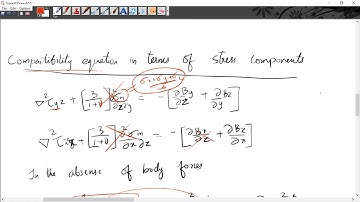 Compatibility equation in terms of stress Components
σx+σy+σz
∇² τyz + [3/(1+ν)] ∂²σm/∂z∂y = - [∂By/∂z + ∂Bz/∂y]
∇² τxz + [3/(1+ν)] ∂²σm/∂x∂z = - [∂Bx/∂z + ∂Bz/∂x]
In the absence of body forces